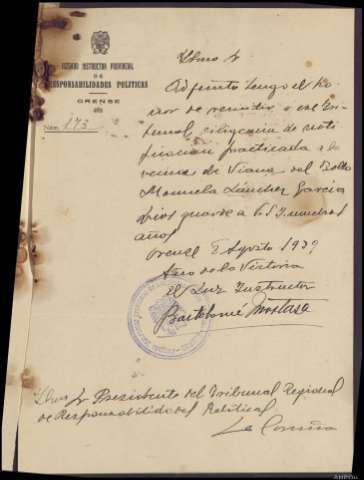 JUZGADO INSTRUCTOR PROVINCIAL
DE
RESPONSABILIDADES POLITICAS
ORENSE
Núm. 173
Ilmo Sr
Adjunto tengo el ho
nor de remitir a ese Tri-
bunal diligencia de noti
ficacion practicada a la
vecina de Viana del Bollo
Manuela Sánchez Garcia
Dios guarde a V.S.I. muchos
años
Orense 2 Agosto 1939
Año de la Victoria
El Juez Instructor
Bartolomé Mostaza
Ilmo Sr Presidente del Tribunal Regional
de Responsabilidades Politicas
La Coruña